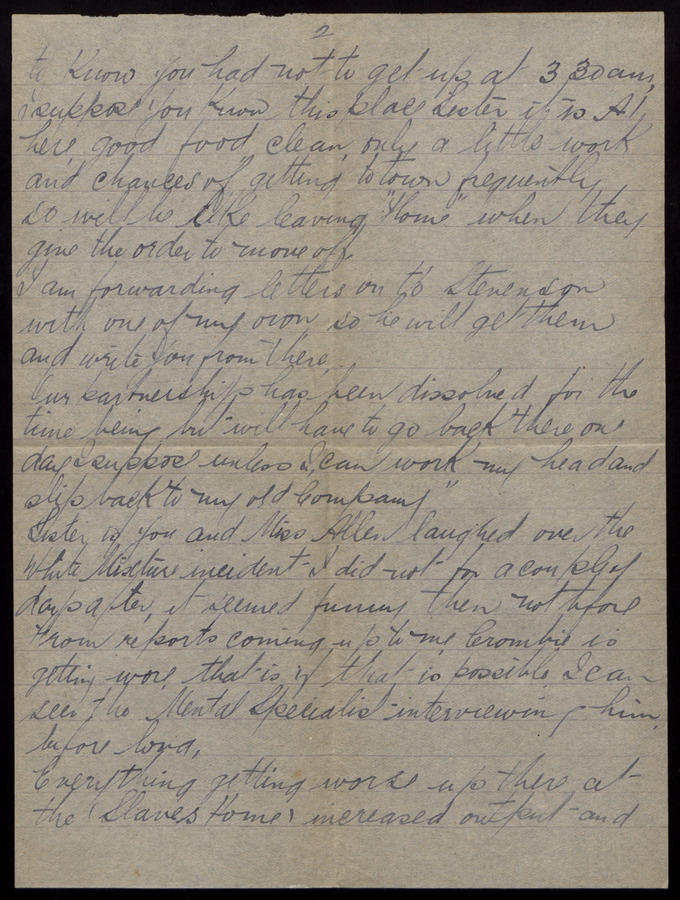 2
to know you had not to get up at 3 30 am,
I suppose you know this place Sister it is A1
here, good food, clean, only a little work
and chances of getting to town frequently
so will be like leaving "Home" when they
give the order to move off.
I am forwarding letters on to Stevenson
with one of my own so he will get them
and write you from there.
Our partnership has been dissolved for the
time being but will have to go back there one
day I suppose unless I can work my head and
slip back to my old Company"
Sister if you and Miss Allen laughed over the
White Mixture incident I did not for a couple of
days after, it seemed funny then not before
From reports coming up to me Crombie is
getting worse, that is if that is possible I can
see the Mental Specialist interviewing him,
before long,
Everything getting worse up there at
the "Slaves Home" increased output and